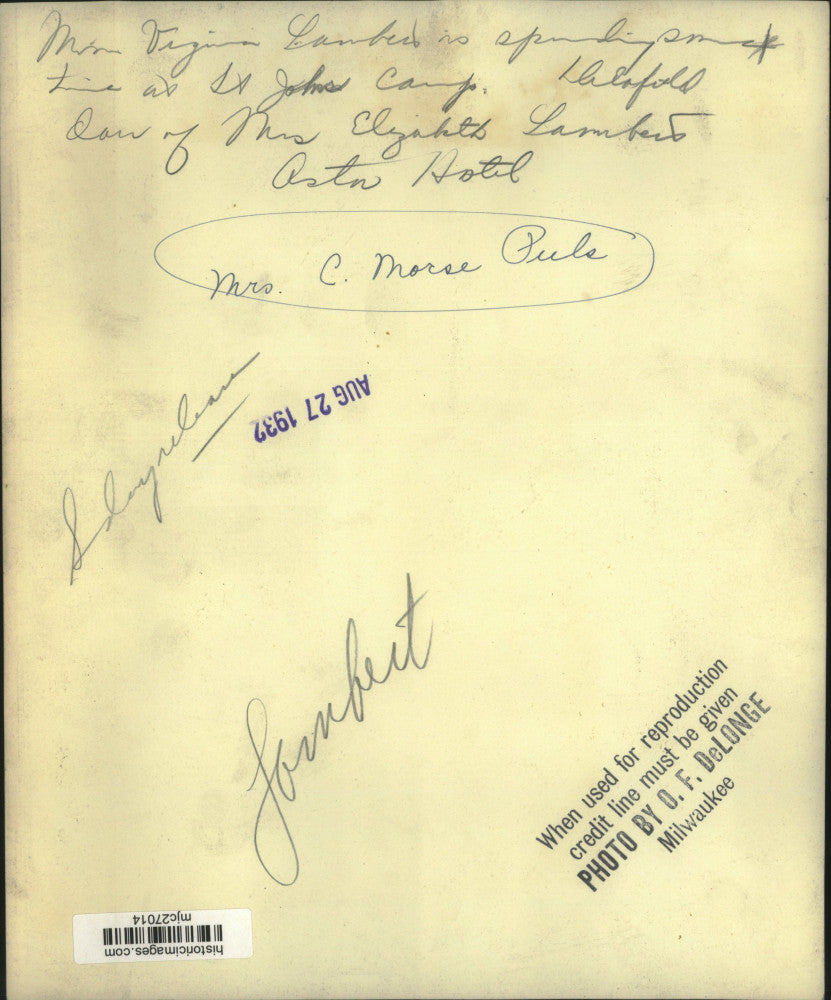 Miss Virginia Lambert is spending some
time at St Johns Camp. Delafield
Dau of Mrs Elizabeth Lambert
Astor Hotel
Mrs. C. Morse Puls
Sday release
AUG 27 1932
Lambert
When used for reproduction
credit line must be given
PHOTO BY O. F. DeLONGE
Milwaukee
historicimages.com
mjc27014